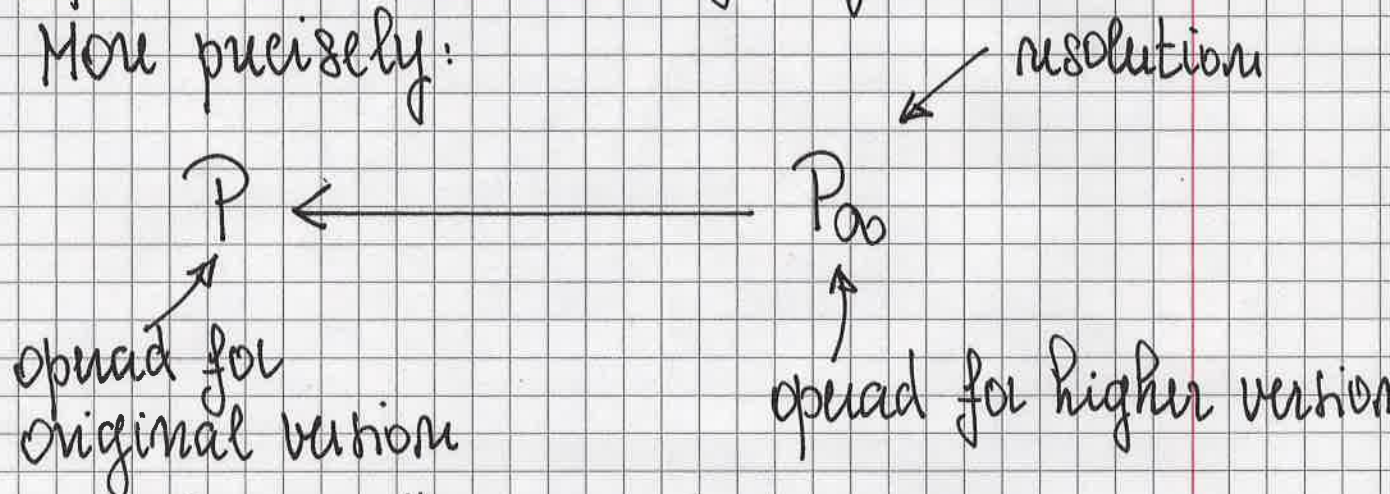 More precisely:
resolution
P ← P∞
operad for
original version
operad for higher version